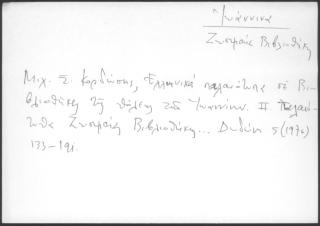 Ἰωάννινα
Ζωσιμαία Βιβλιοθήκη
Μιχ. Σ. Κορδώσης, Ἑλληνικὰ παλαιότυπα σὲ Βι-
βλιοθῆκες τῆς πόλεως τῶν Ἰωαννίνων. II Παλαιό-
τυπα Ζωσιμαίας Βιβλιοθήκης... Δωδώνη 5 (1976)
133-191.